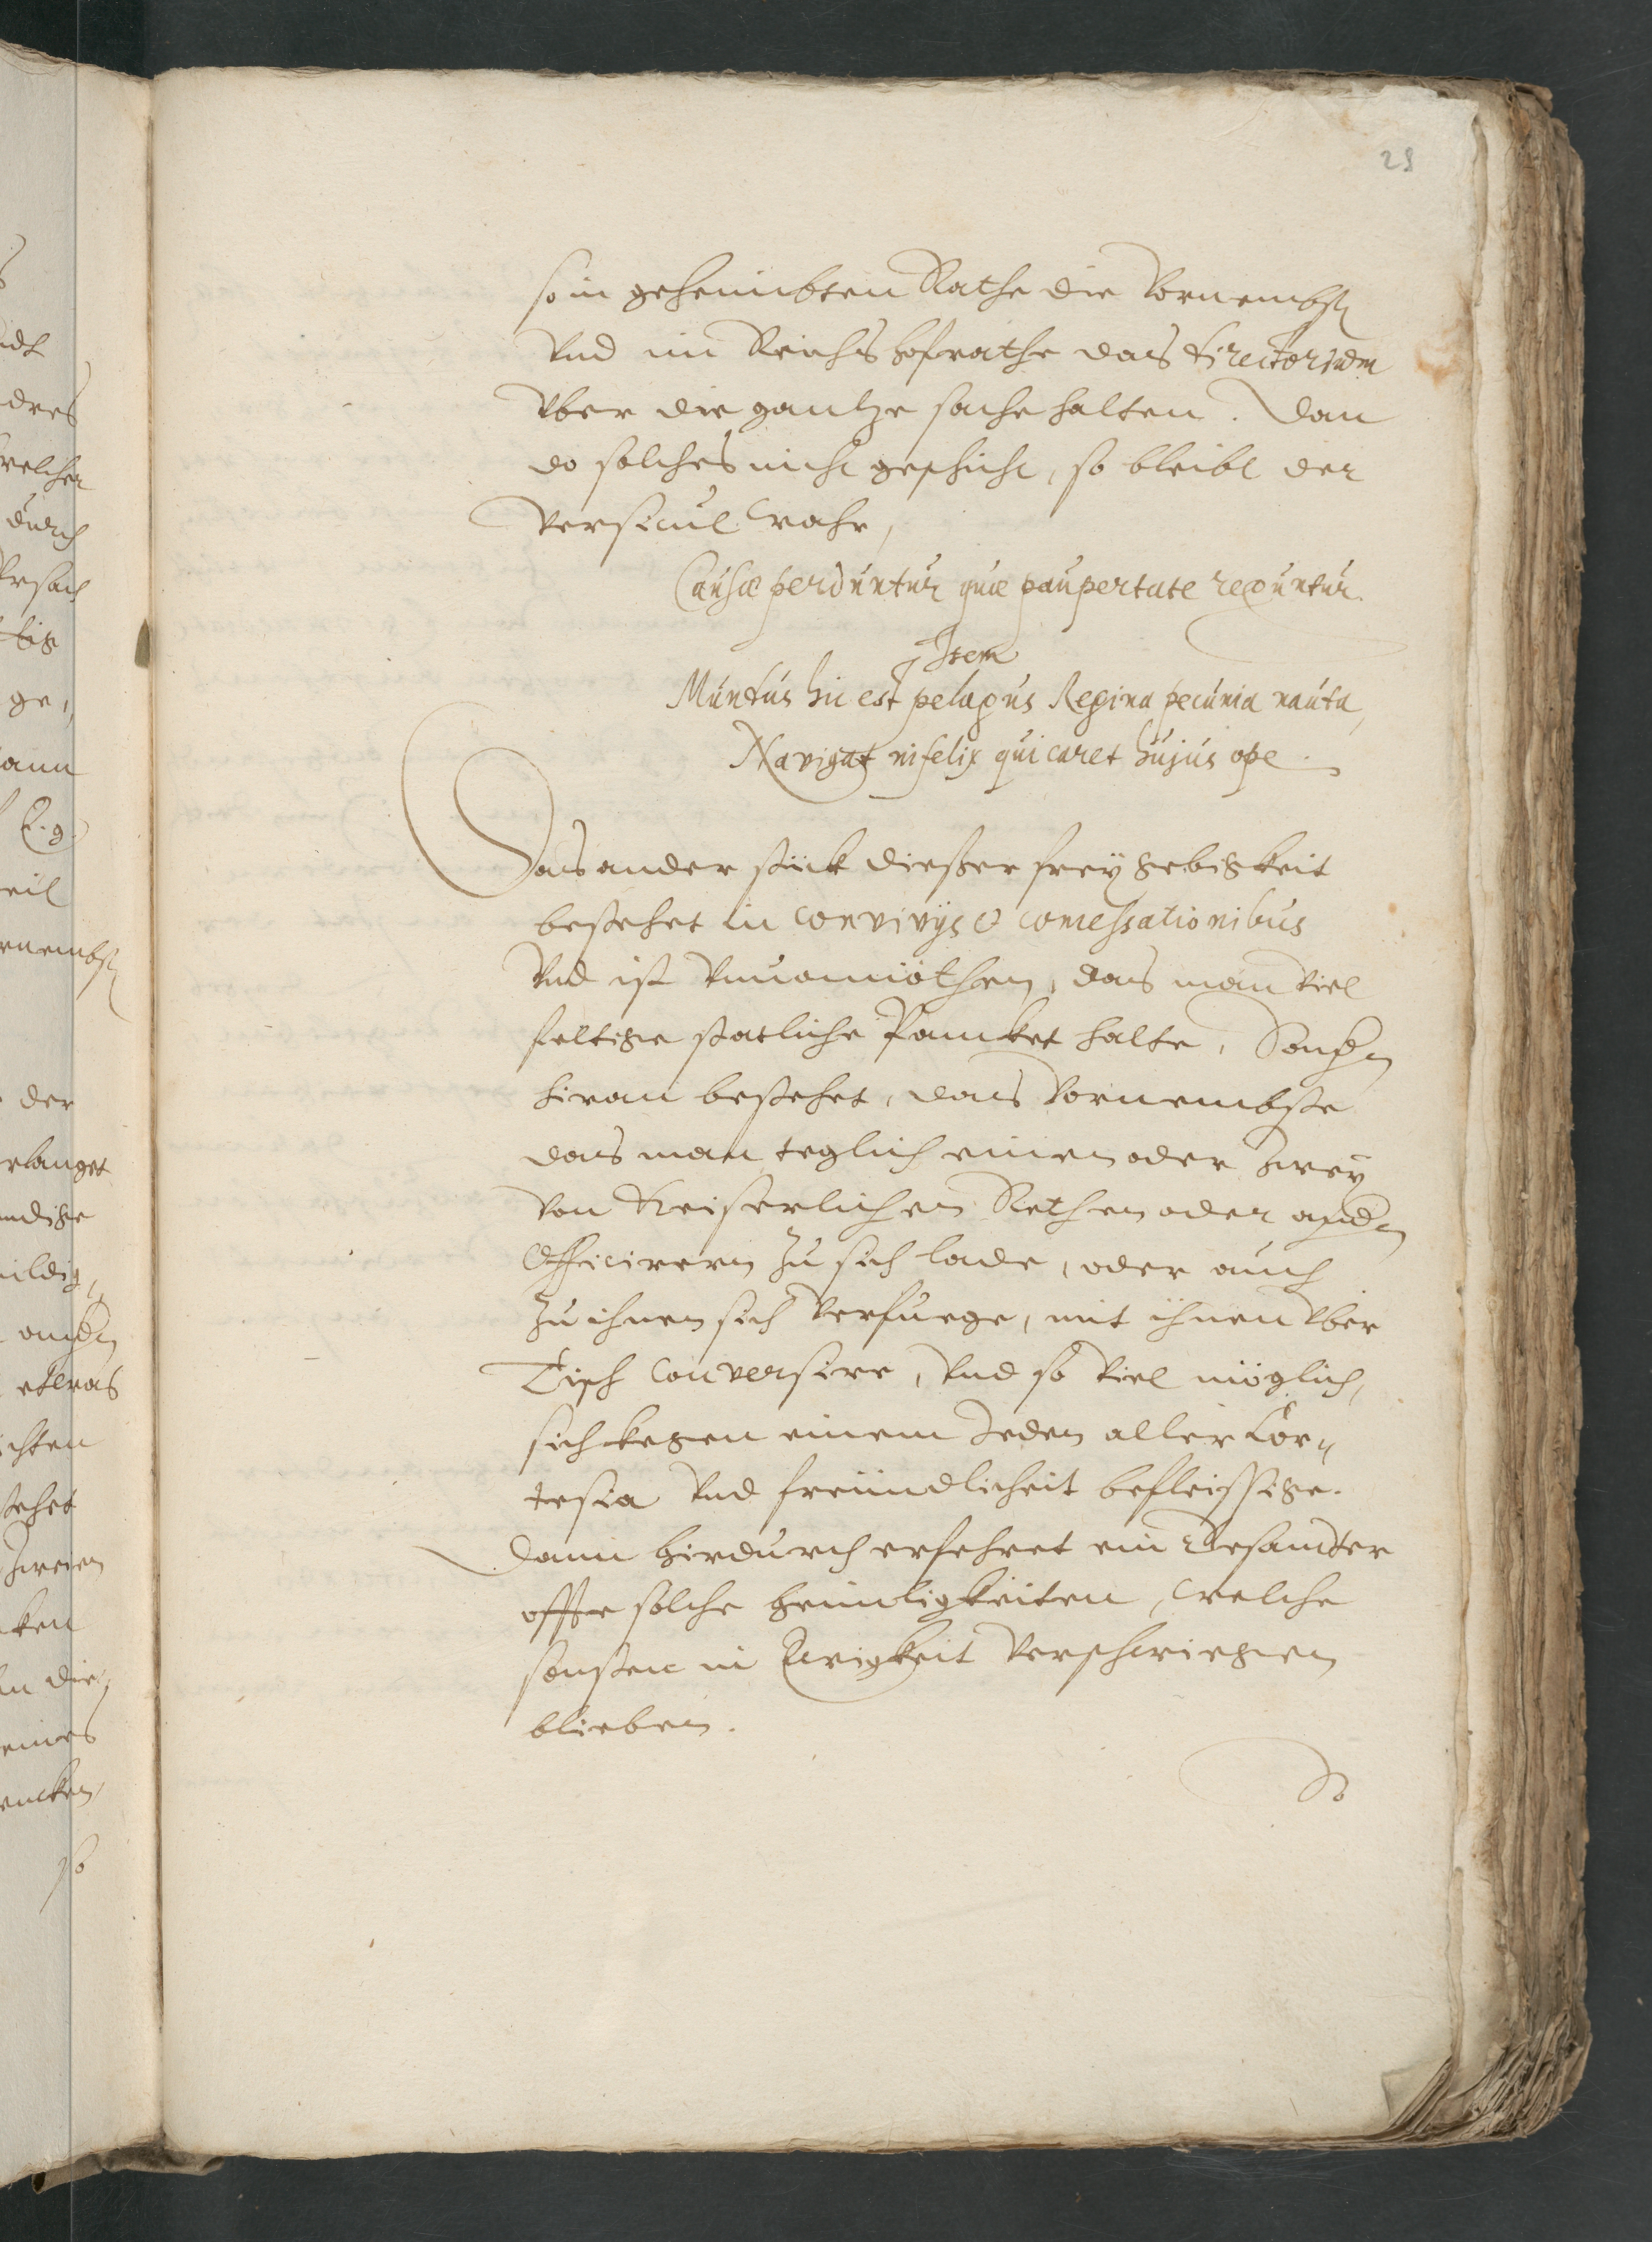 29
so in geheimbten Rathe die Vornembst
Vnd im Reichshofrathe das directorium
Vber die gantze sache halten. Dan
do solches nicht geschicht, so bleibt der
Versicul wahr,
Causæ perduntur quæ paupertate reguntur.
Item
Muntus hic est pelagus Regina pecunia nauta,
Navigat infelix qui caret hujus ope.
Das ander stück dießer freygebigkeit
bestehet in convivijs & comessationibus
Vnd ist Vnuonnöthen, das man viel
feltige statliche Pancket halte, Sondern
hiran bestehet, das Vornembste
das man teglich einen oder zwey
Von Keiserlichen Rethen oder andern
Officirern zu sich lade, oder auch
zu ihnen sich verfuege, mit ihnen Vber
Tisch conversire, Vnd so viel möglich,
sich kegen einem Jeden aller Cor-
tesia Vnd freündlicheit befleissige.
Dann hirdurch erfehret ein Gesandter
offte solche heimligkeiten, welche
sonsten in Ewigkeit verschwiegen
blieben.
So